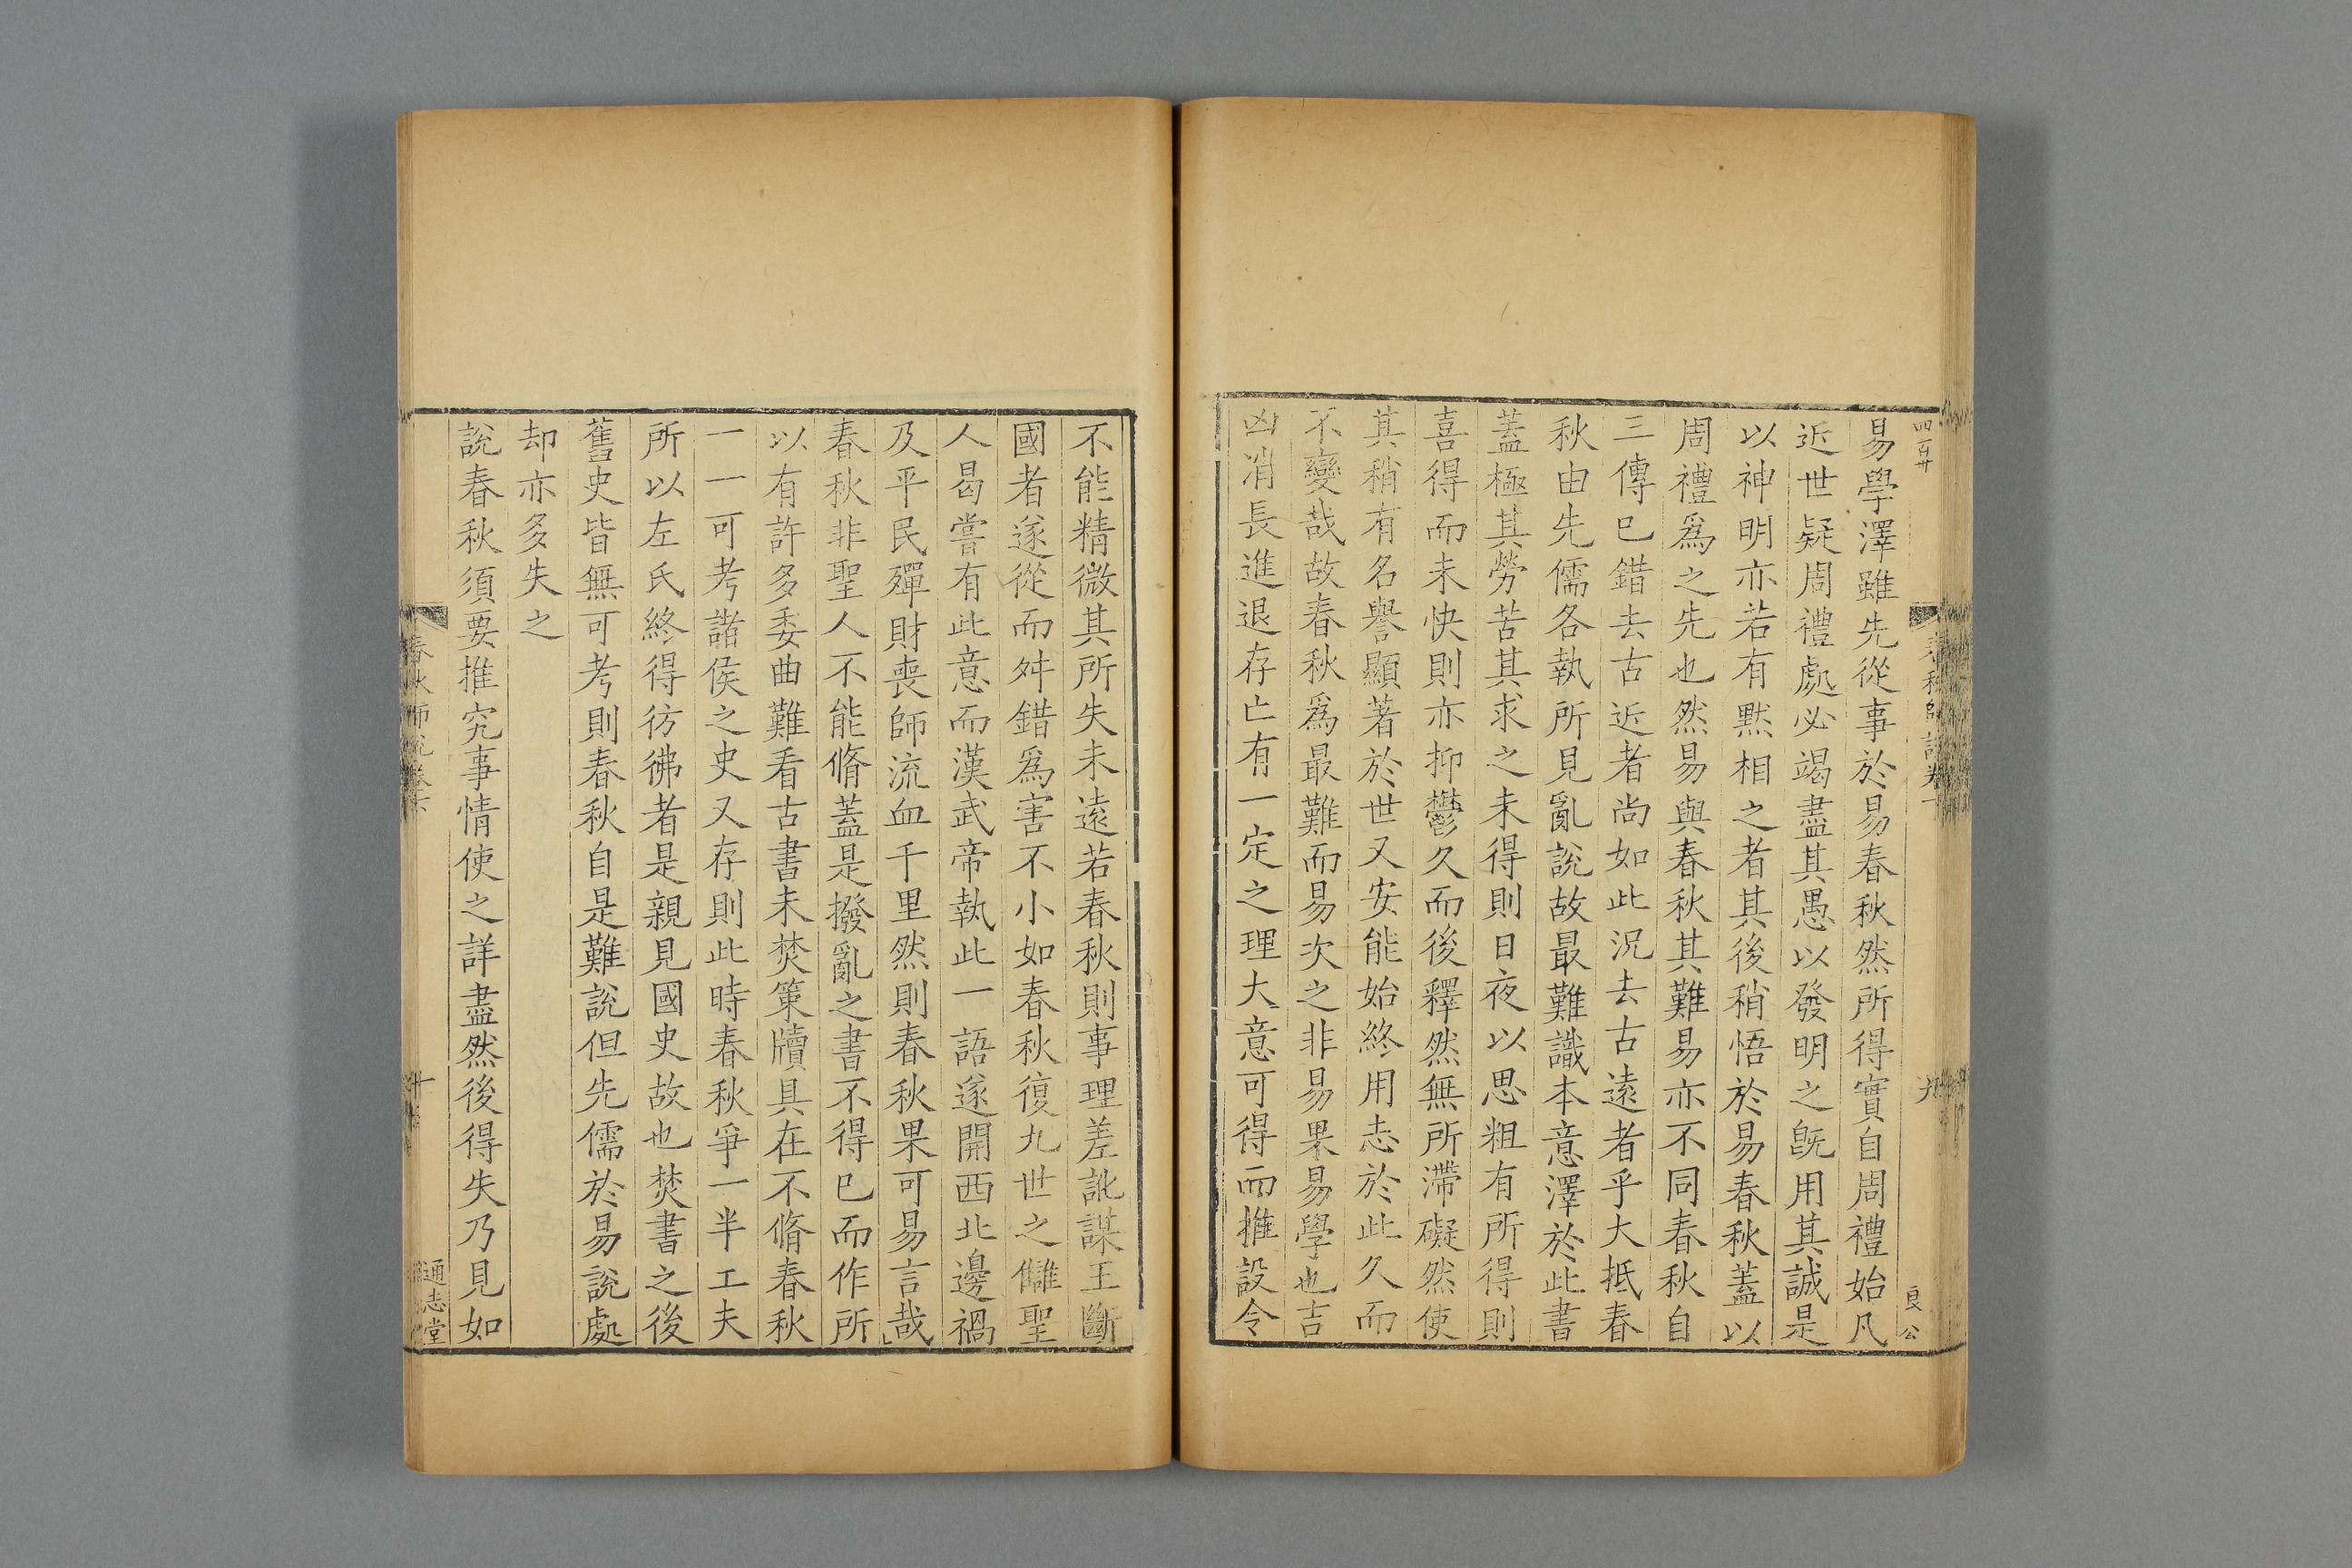 四百卅
春秋師說卷下
九
良公
易學澤雖先從事於易春秋然所得實自周禮始凡
近世疑周禮處必竭盡其愚以發明之旣用其誠是
以神明亦若有黙相之者其後稍悟於易春秋蓋以
周禮爲之先也然易與春秋其難易亦不同春秋自
三傳已錯去古近者尚如此況去古遠者乎大抵春
秋由先儒各執所見亂說故最難識本意澤於此書
蓋極其勞苦其求之未得則日夜以思粗有所得則
喜得而未快則亦抑鬱久而後釋然無所滯礙然使
其稍有名譽顯著於世又安能始終用志於此久而
不變哉故春秋爲最難而易次之非易果易學也吉
凶消長進退存亡有一定之理大意可得而推設令
不能精微其所失未遠若春秋則事理差訛謀王斷
國者遂從而舛錯爲害不小如春秋復九世之讎聖
人曷嘗有此意而漢武帝執此一語遂開西北邊禍
及平民殫財喪師流血千里然則春秋果可易言哉
春秋非聖人不能脩蓋是撥亂之書不得已而作所
以有許多委曲難看古書未焚策牘具在不脩春秋
一一可考諸侯之史又存則此時春秋爭一半工夫
所以左氏終得彷彿者是親見國史故也焚書之後
舊史皆無可考則春秋自是難說但先儒於易說處
却亦多失之
說春秋須要推究事情使之詳盡然後得失乃見如
春秋師說卷下
十
通志堂